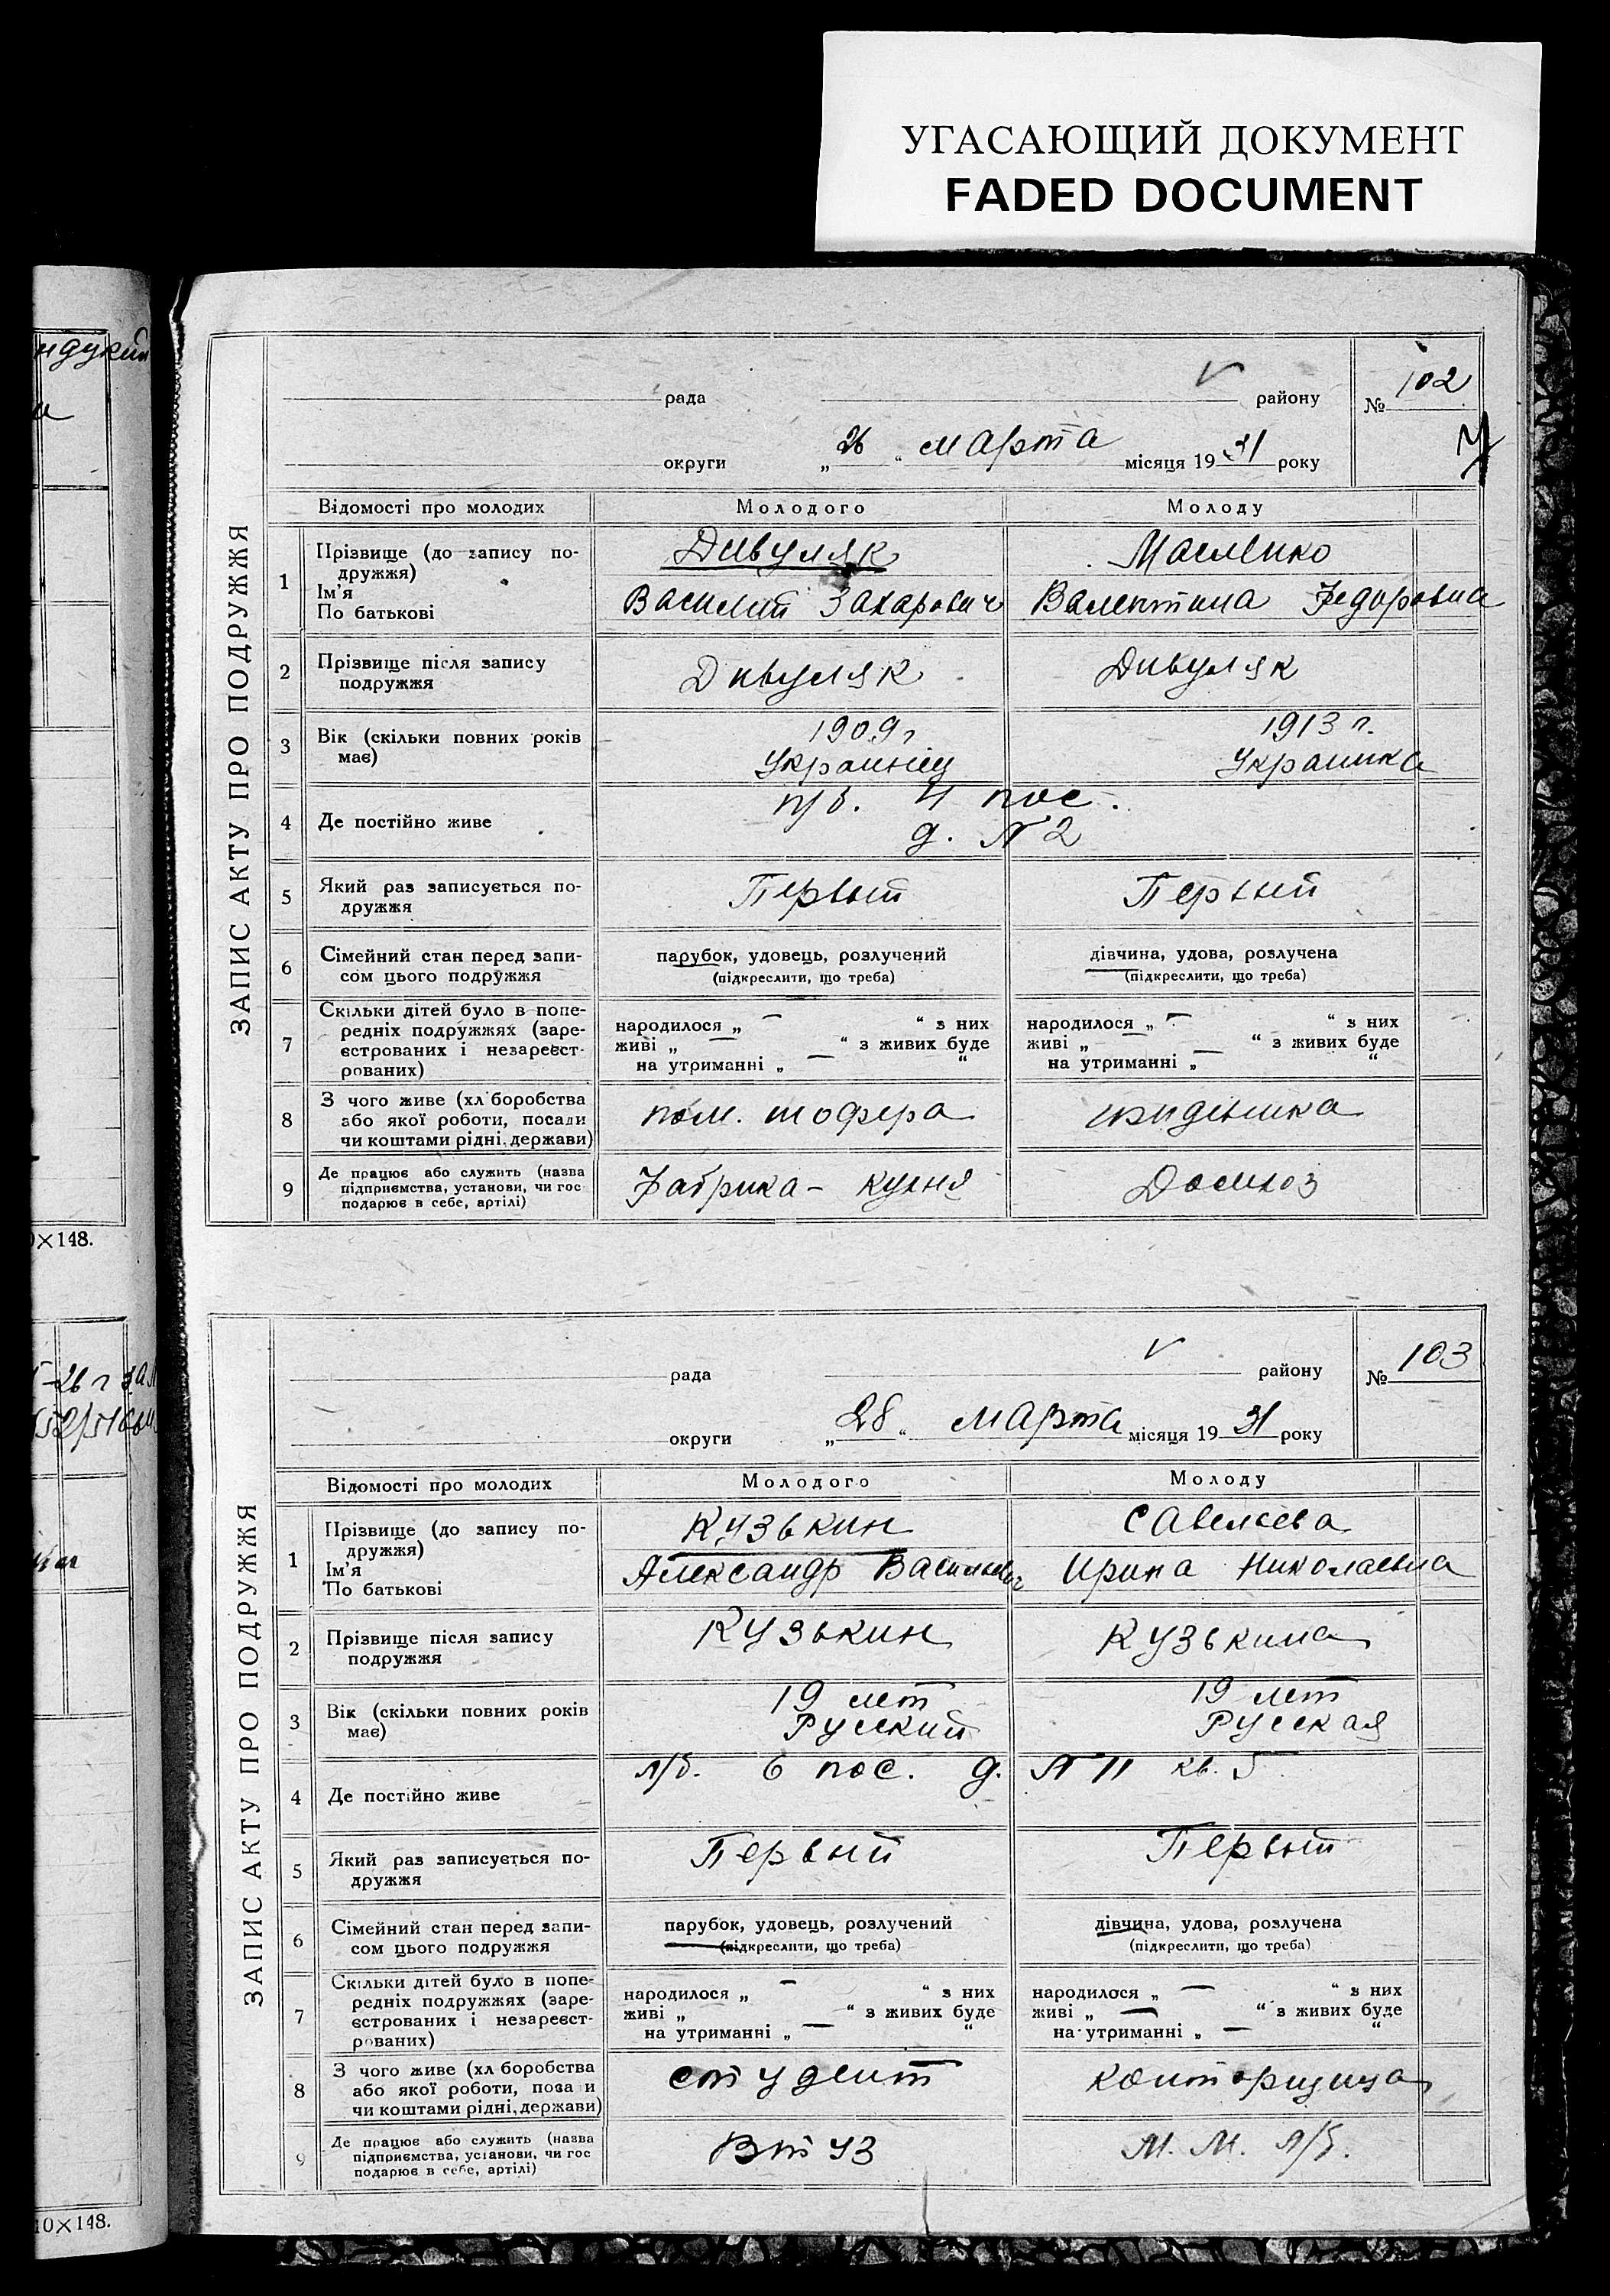 УГАСАЮЩИЙ ДОКУМЕНТ
FADED DOCUMENT
ЗАПИС АКТУ ПРО ПОДРУЖЖЯ
рада району № 102
округи „26“ марта місяця 1931 року
Відомості про молодих Молодого Молоду
1 Прізвище (до запису по-
дружжя)
Ім'я
По батькові
Дивуляк
Василий Захарович
Масленко
Валентина Федоровна
2 Прізвище після запису
подружжя
Дивуляк Дивуляк
3 Вік (скільки повних років
має)
1909 г 1913 г.
Украинец Украинка
4 Де постійно живе
п/б. 4 пос.
д. № 2
5 Який раз записується по-
дружжя
Первый Первый
6 Сімейний стан перед запи-
сом цього подружжя
парубок, удовець, розлучений
(підкреслити, що треба)
дівчина, удова, розлучена
(підкреслити, що треба)
7 Скільки дітей було в попе-
редніх подружжях (заре-
єстрованих і незареєст-
рованих)
народилося „ — “ з них
живі „ — “ з живих буде
на утриманні „ — “
народилося „ — “ з них
живі „ — “ з живих буде
на утриманні „ — “
8 З чого живе (хліборобства
або якої роботи, посади
чи коштами рідні, держави)
пом. шофера
9 Де працює або служить (назва
підприємства, установи, чи гос
подарює в себе, артілі)
Фабрика – кухня
0×148.
ЗАПИС АКТУ ПРО ПОДРУЖЖЯ
рада району № 103
округи „28“ марта місяця 1931 року
Відомості про молодих Молодого Молоду
1 Прізвище (до запису по-
дружжя)
Ім'я
По батькові
Кузькин
Александр Васильевич
Савельева
Ирина Николаевна
2 Прізвище після запису
подружжя
Кузькин Кузькина
3 Вік (скільки повних років
має)
19 лет 19 лет
Русский Русская
4 Де постійно живе
л/б. 6 пос. д. № 11 кв. 5
5 Який раз записується по-
дружжя
Первый Первый
6 Сімейний стан перед запи-
сом цього подружжя
парубок, удовець, розлучений
(підкреслити, що треба)
дівчина, удова, розлучена
(підкреслити, що треба)
7 Скільки дітей було в попе-
редніх подружжях (заре-
єстрованих і незареєст-
рованих)
народилося „ — “ з них
живі „ “ з живих буде
на утриманні „ — “
народилося „ — “ з них
живі „ — “ з живих буде
на утриманні „ — “
8 З чого живе (хліборобства
або якої роботи, посади
чи коштами рідні, держави)
студент конторщица
9 Де працює або служить (назва
підприємства, установи, чи гос
подарює в себе, артілі)
Втуз М. М. л/б.
10×148.